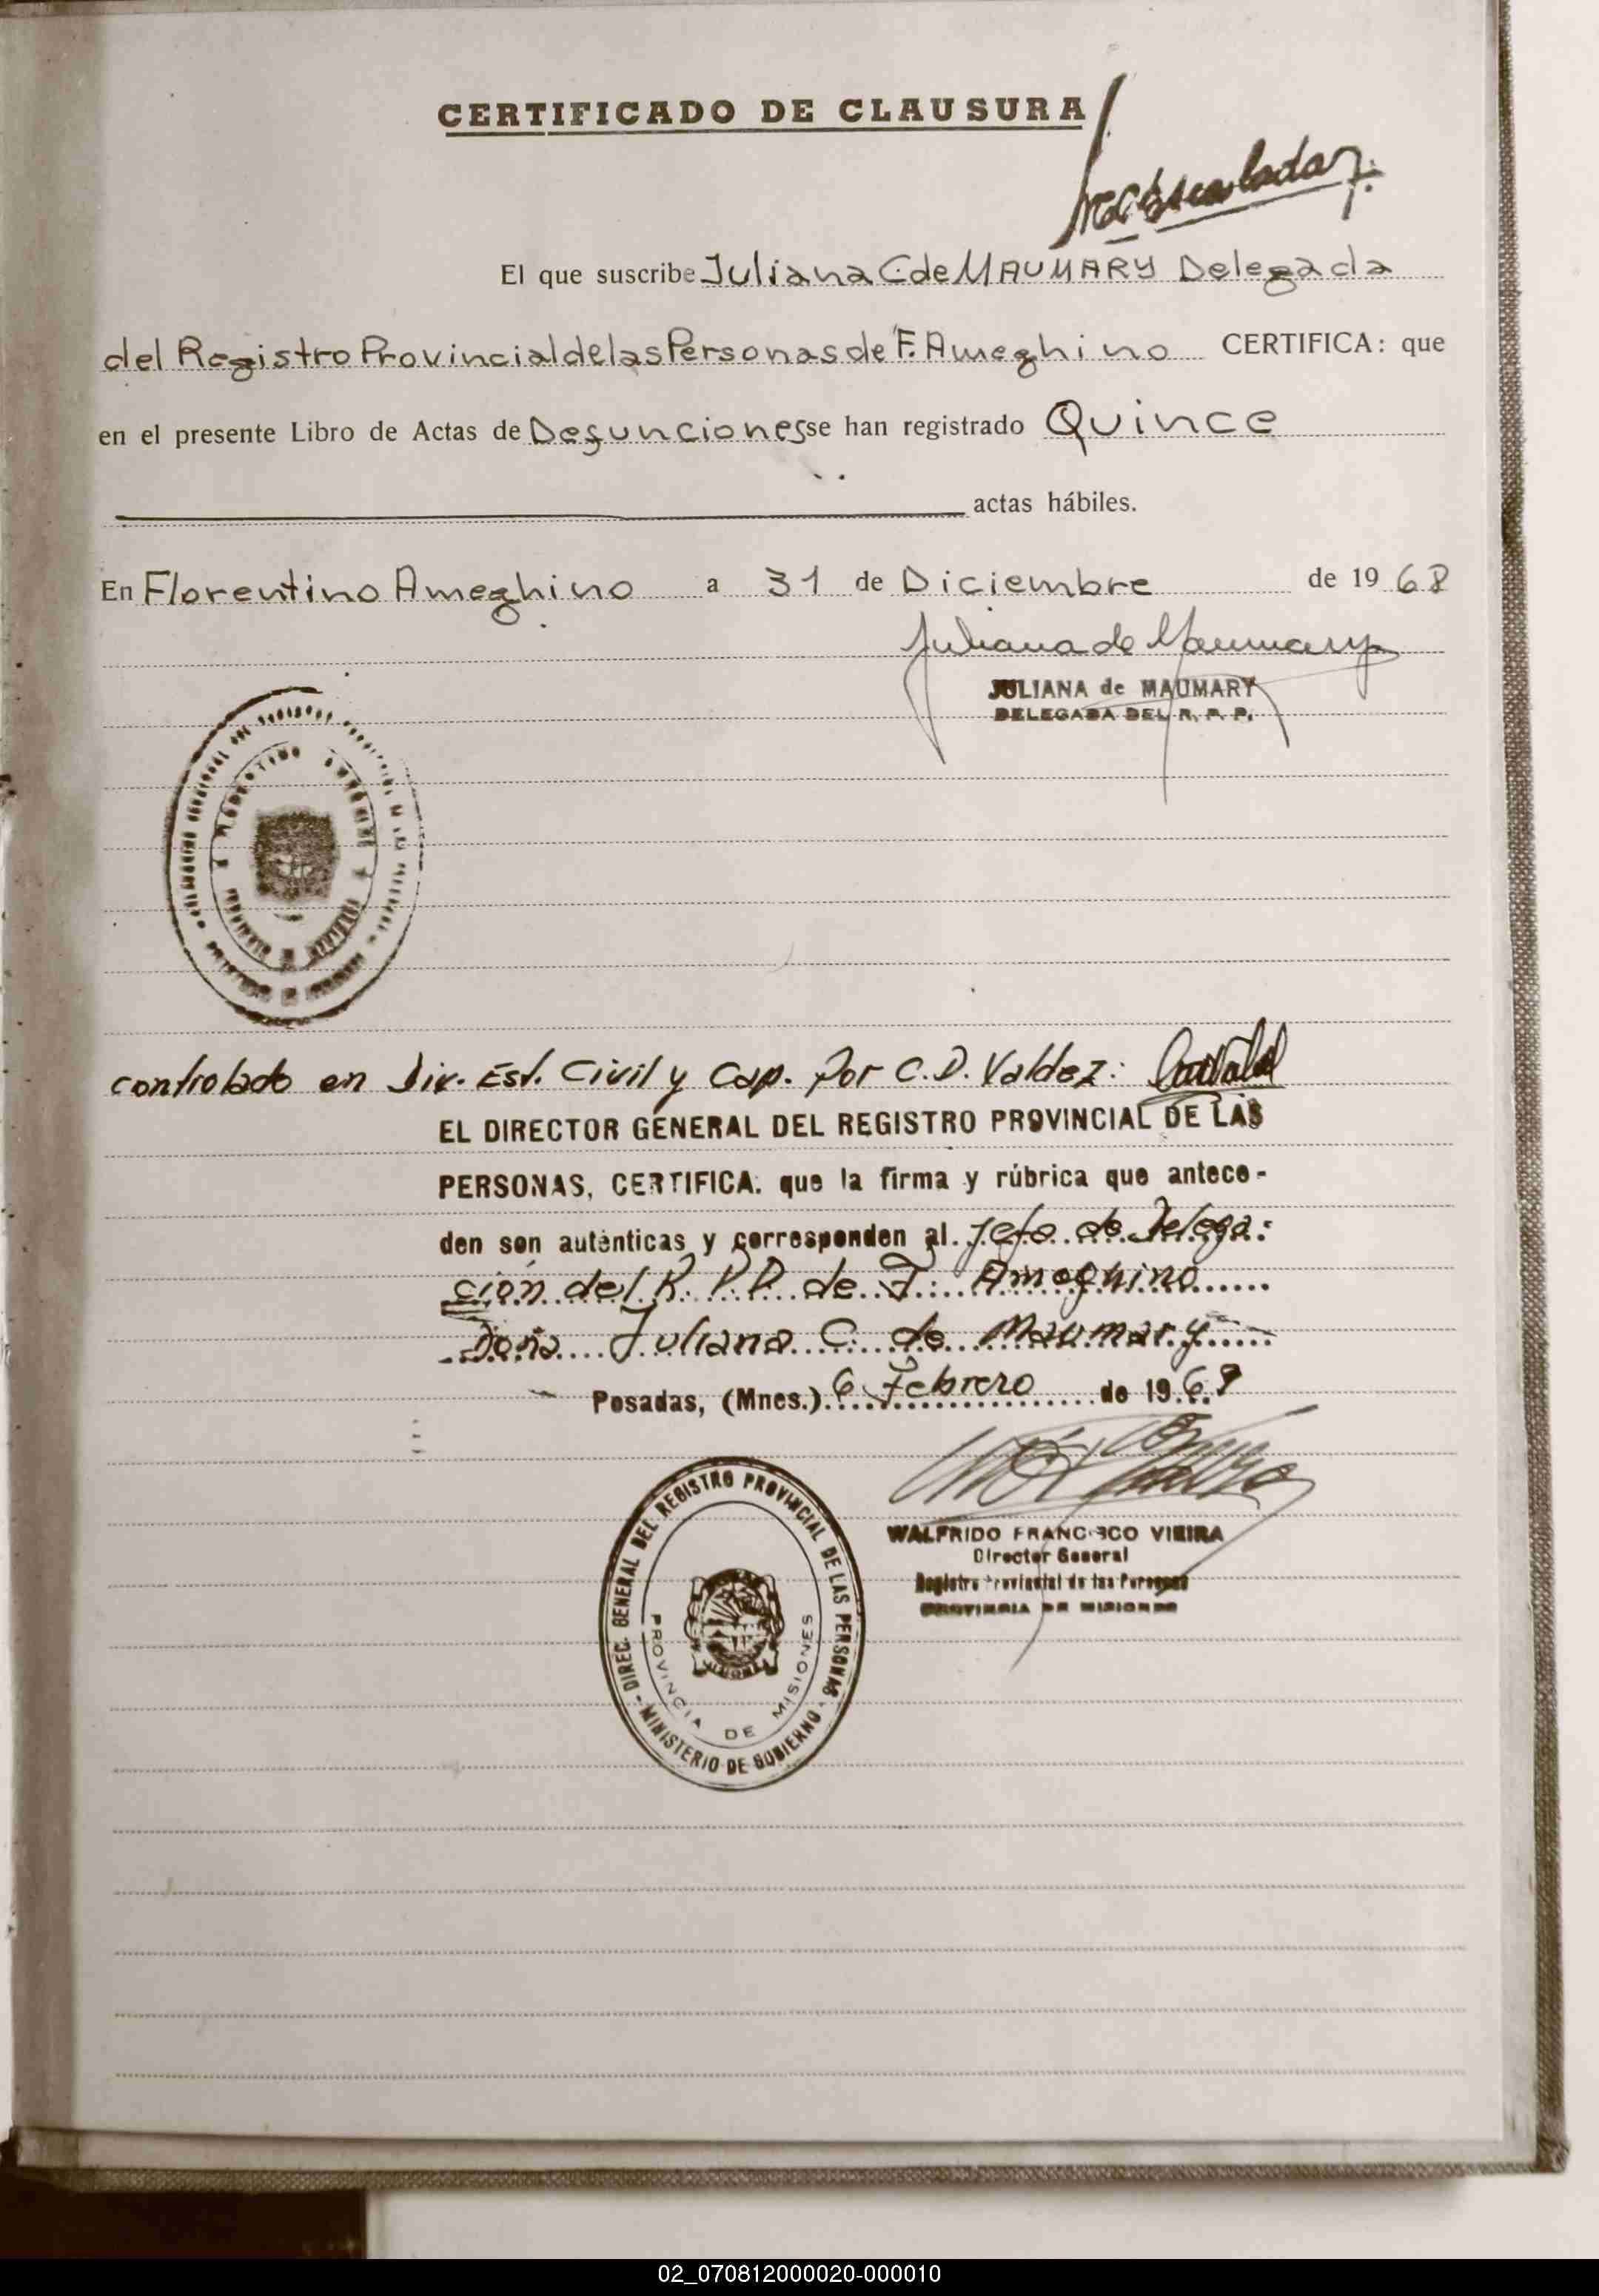 CERTIFICADO DE CLAUSURA
El que suscribe Juliana C. de MAUMARY Delegada
del Registro Provincial de las Personas de F. Ameghino CERTIFICA: que
en el presente Libro de Actas de Defunciones se han registrado Quince
actas hábiles.
En Florentino Ameghino a 31 de Diciembre de 1968
Juliana de Maumary
JULIANA de MAUMARY
DELEGADA DEL R. P. P.
controlado en Div. Est. Civil y Cap. Por C. D. Valdez:
EL DIRECTOR GENERAL DEL REGISTRO PROVINCIAL DE LAS
PERSONAS, CERTIFICA: que la firma y rúbrica que antece-
den son auténticas y corresponden al Jefe de Delega:
ción del R. P. P. de F. Ameghino
Doña Juliana C. de Maumary
Posadas, (Mnes.) 6 Febrero de 196
WALFRIDO FRANCISCO VIEIRA
Director General
Registro Provincial de las Personas
PROVINCIA DE MISIONES
DIREC. GENERAL DEL REGISTRO PROVINCIAL DE LAS PERSONAS
- MINISTERIO DE GOBIERNO -
PROVINCIA DE MISIONES
02_070812000020-000010